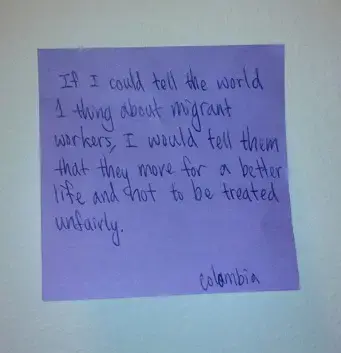 If I could tell the world
1 thing about migrant
workers, I would tell them
that they move for a better
life and not to be treated
unfairly.
colombia